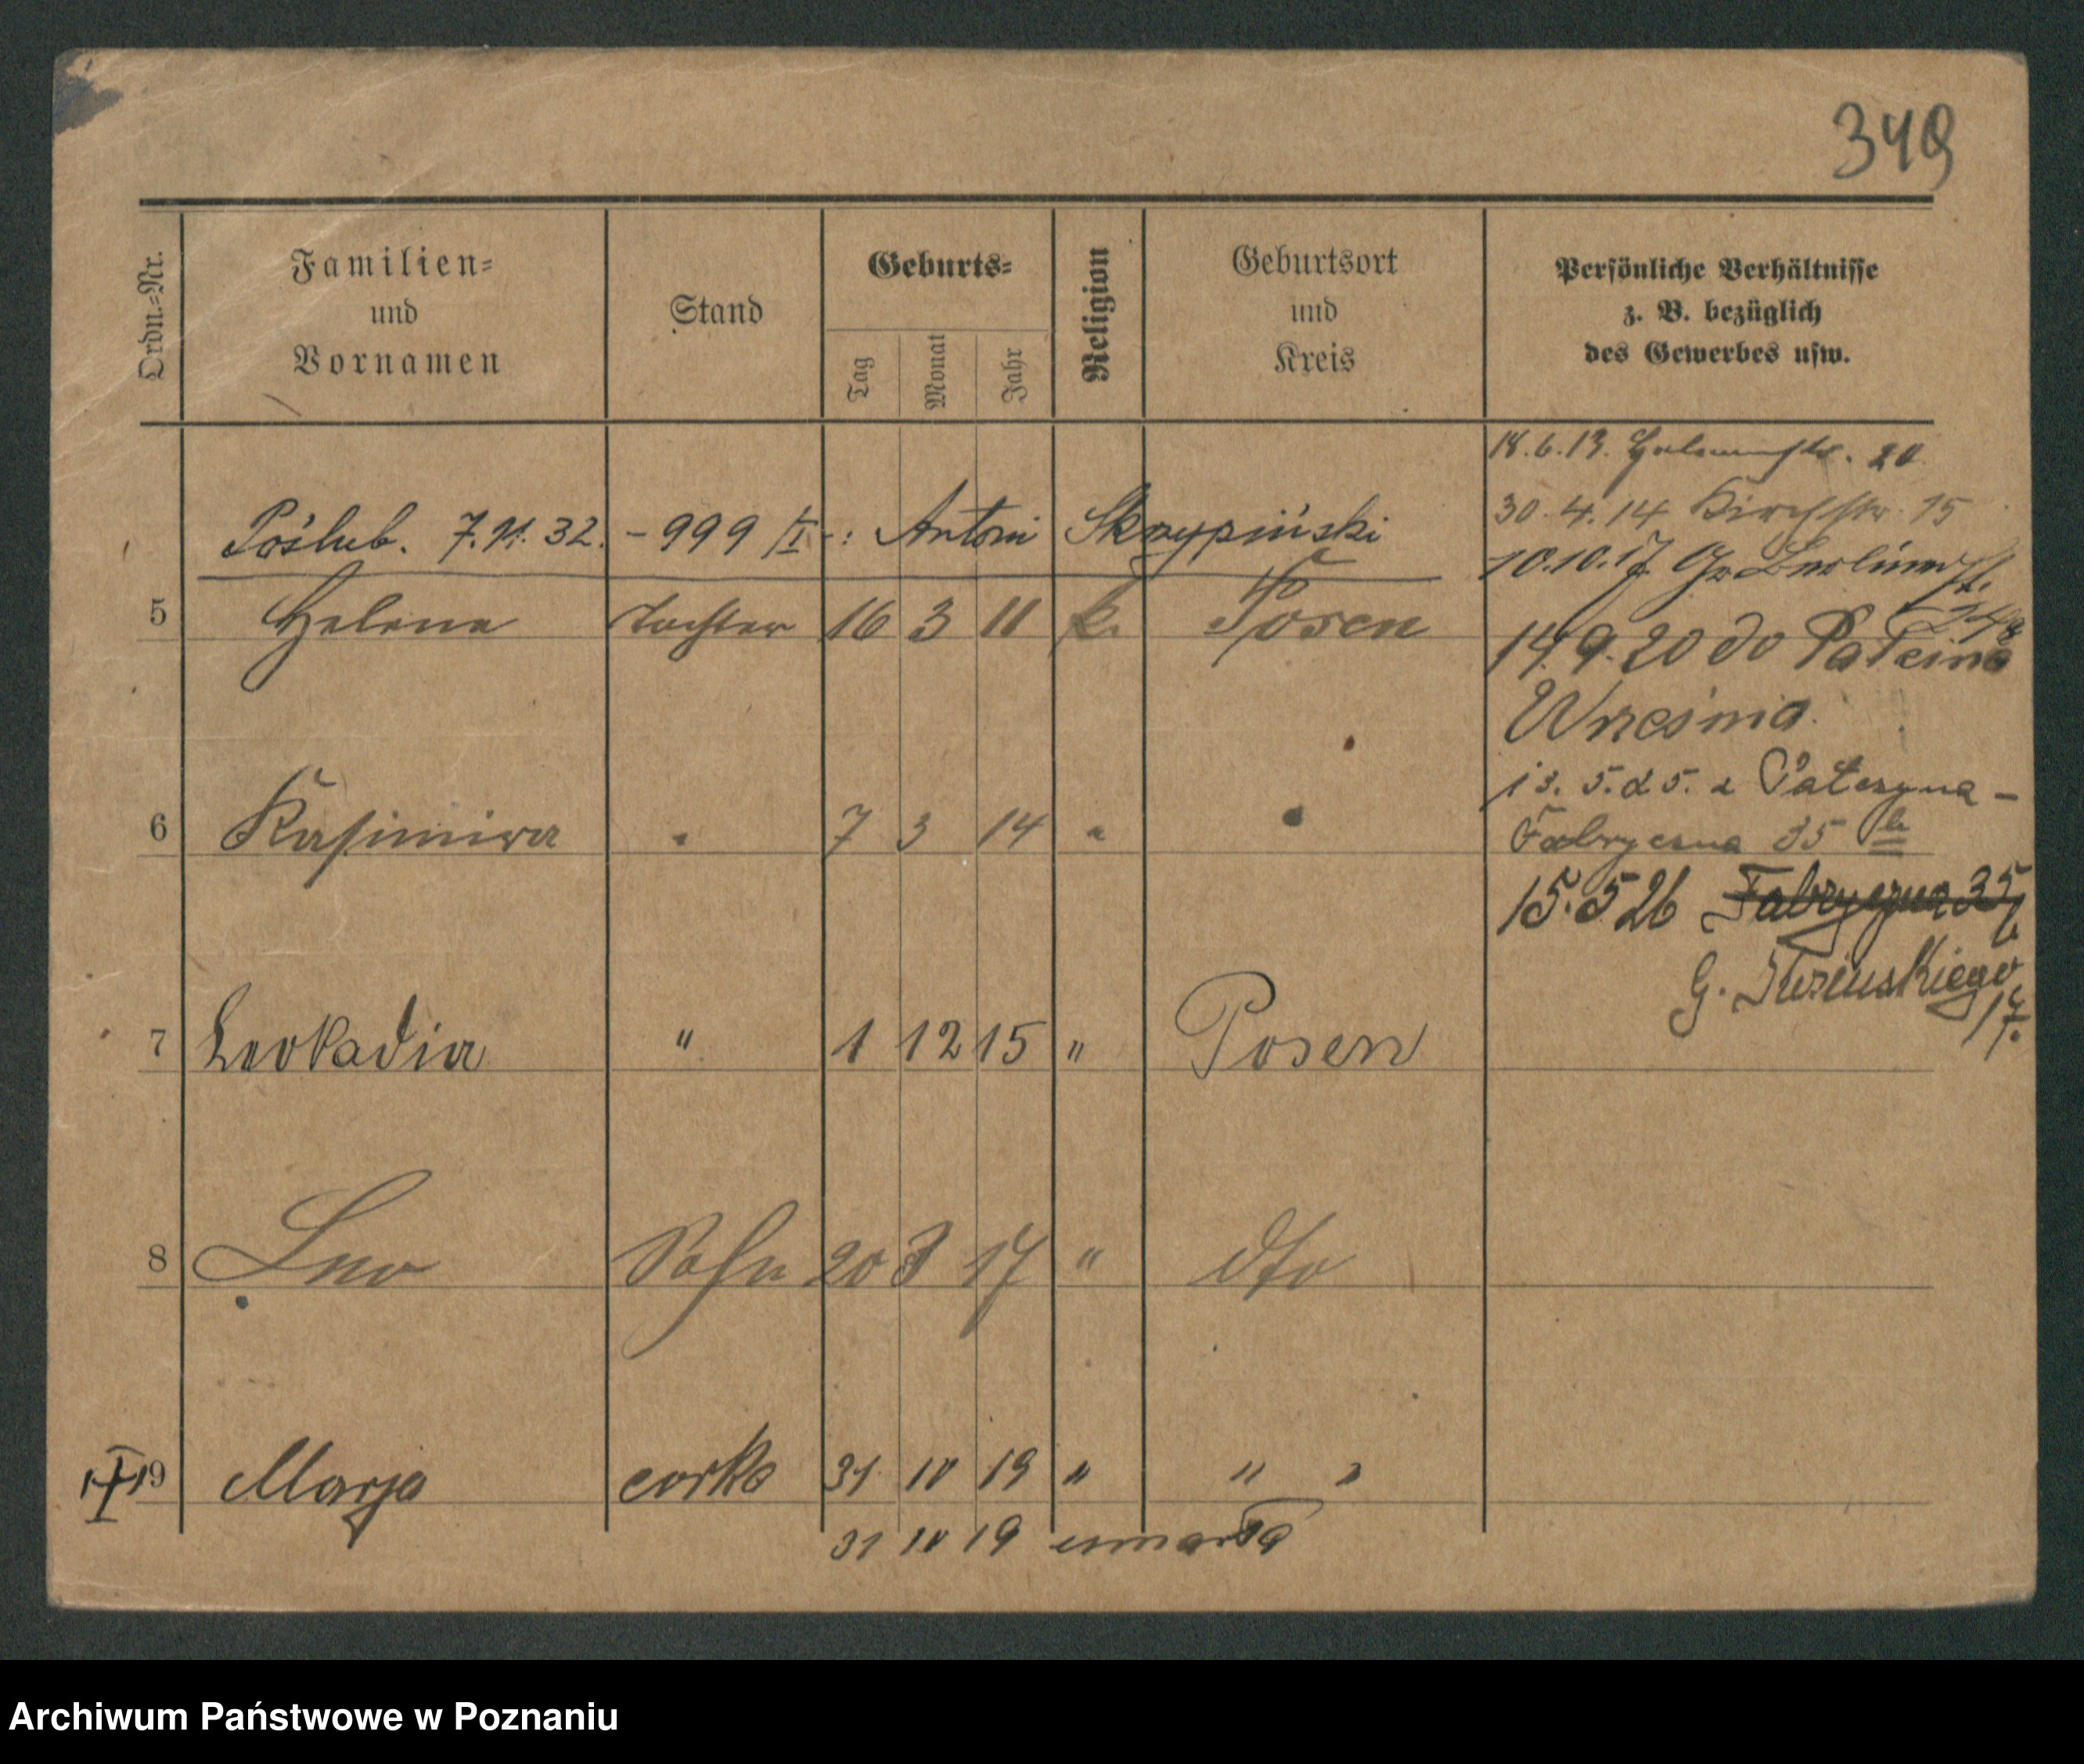 349
Ordn.=Nr.
Familien=
und
Vornamen
Stand
Geburts=
Tag
Monat
Jahr
Religion
Geburtsort
und
Kreis
Persönliche Verhältnisse
z. B. bezüglich
des Gewerbes usw.
18.6.13. 20
30.4.14 Kirchstr. 15
10.10.17. Gr Berlinerst.
14.9.20 do
Września
13. 5. 25. z
Fabryczna 35 b
15.5 26 Fabryczna 35
G.
Póślub. 7.11.32. - 999/I -: Antoni Skrzypiński
5 Helene Tochter 16 3 11 k. Posen
6 Kasimira " 7 3 14 " "
7 Leokadia " 1 12 15 " Posen
8 Leo Sohn 20 3 17 " dto
9 Marja corka 31 10 19 " " "
31 10 19 umarła
Archiwum Państwowe w Poznaniu